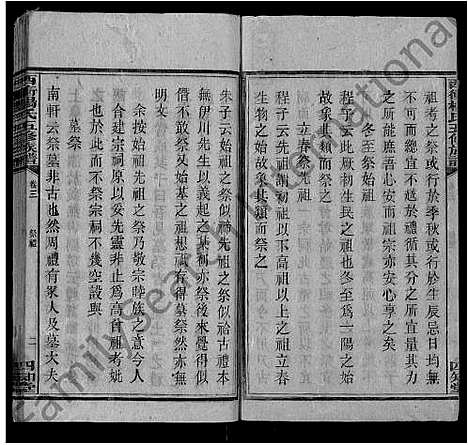 祖考之祭或行於季秋或行於生辰忌日均無
不可而總宜不越於禮循其分之所正量其力
之所能庶吾心安而祖宗亦安心享之矣
冬至祭始祖
程子云此厥初生民之祖也冬至一陽之始故
象其類而祭之
立春祭先祖
程子云初祖以下高祖以上之祖也立春
生物之始故象其類而祭之
朱子云始祖之祭似禘先祖之祭似祫古禮本
無伊川先生以義起之某初亦祭後來覺得似
僭不敢祭始基之祖想祗有得墓祭然亦無
明文
余按始祖先祖之祭乃敬宗睦族之意今人
合建宗祠原以妥先靈非止為高曾祖考妣
已然而不祭宗祠不幾空設與
墓祭
南軒云祭墓非古也然周禮有冢人及墓大夫
西衝楊氏五修族譜
卷三
祭禮
二
四知堂